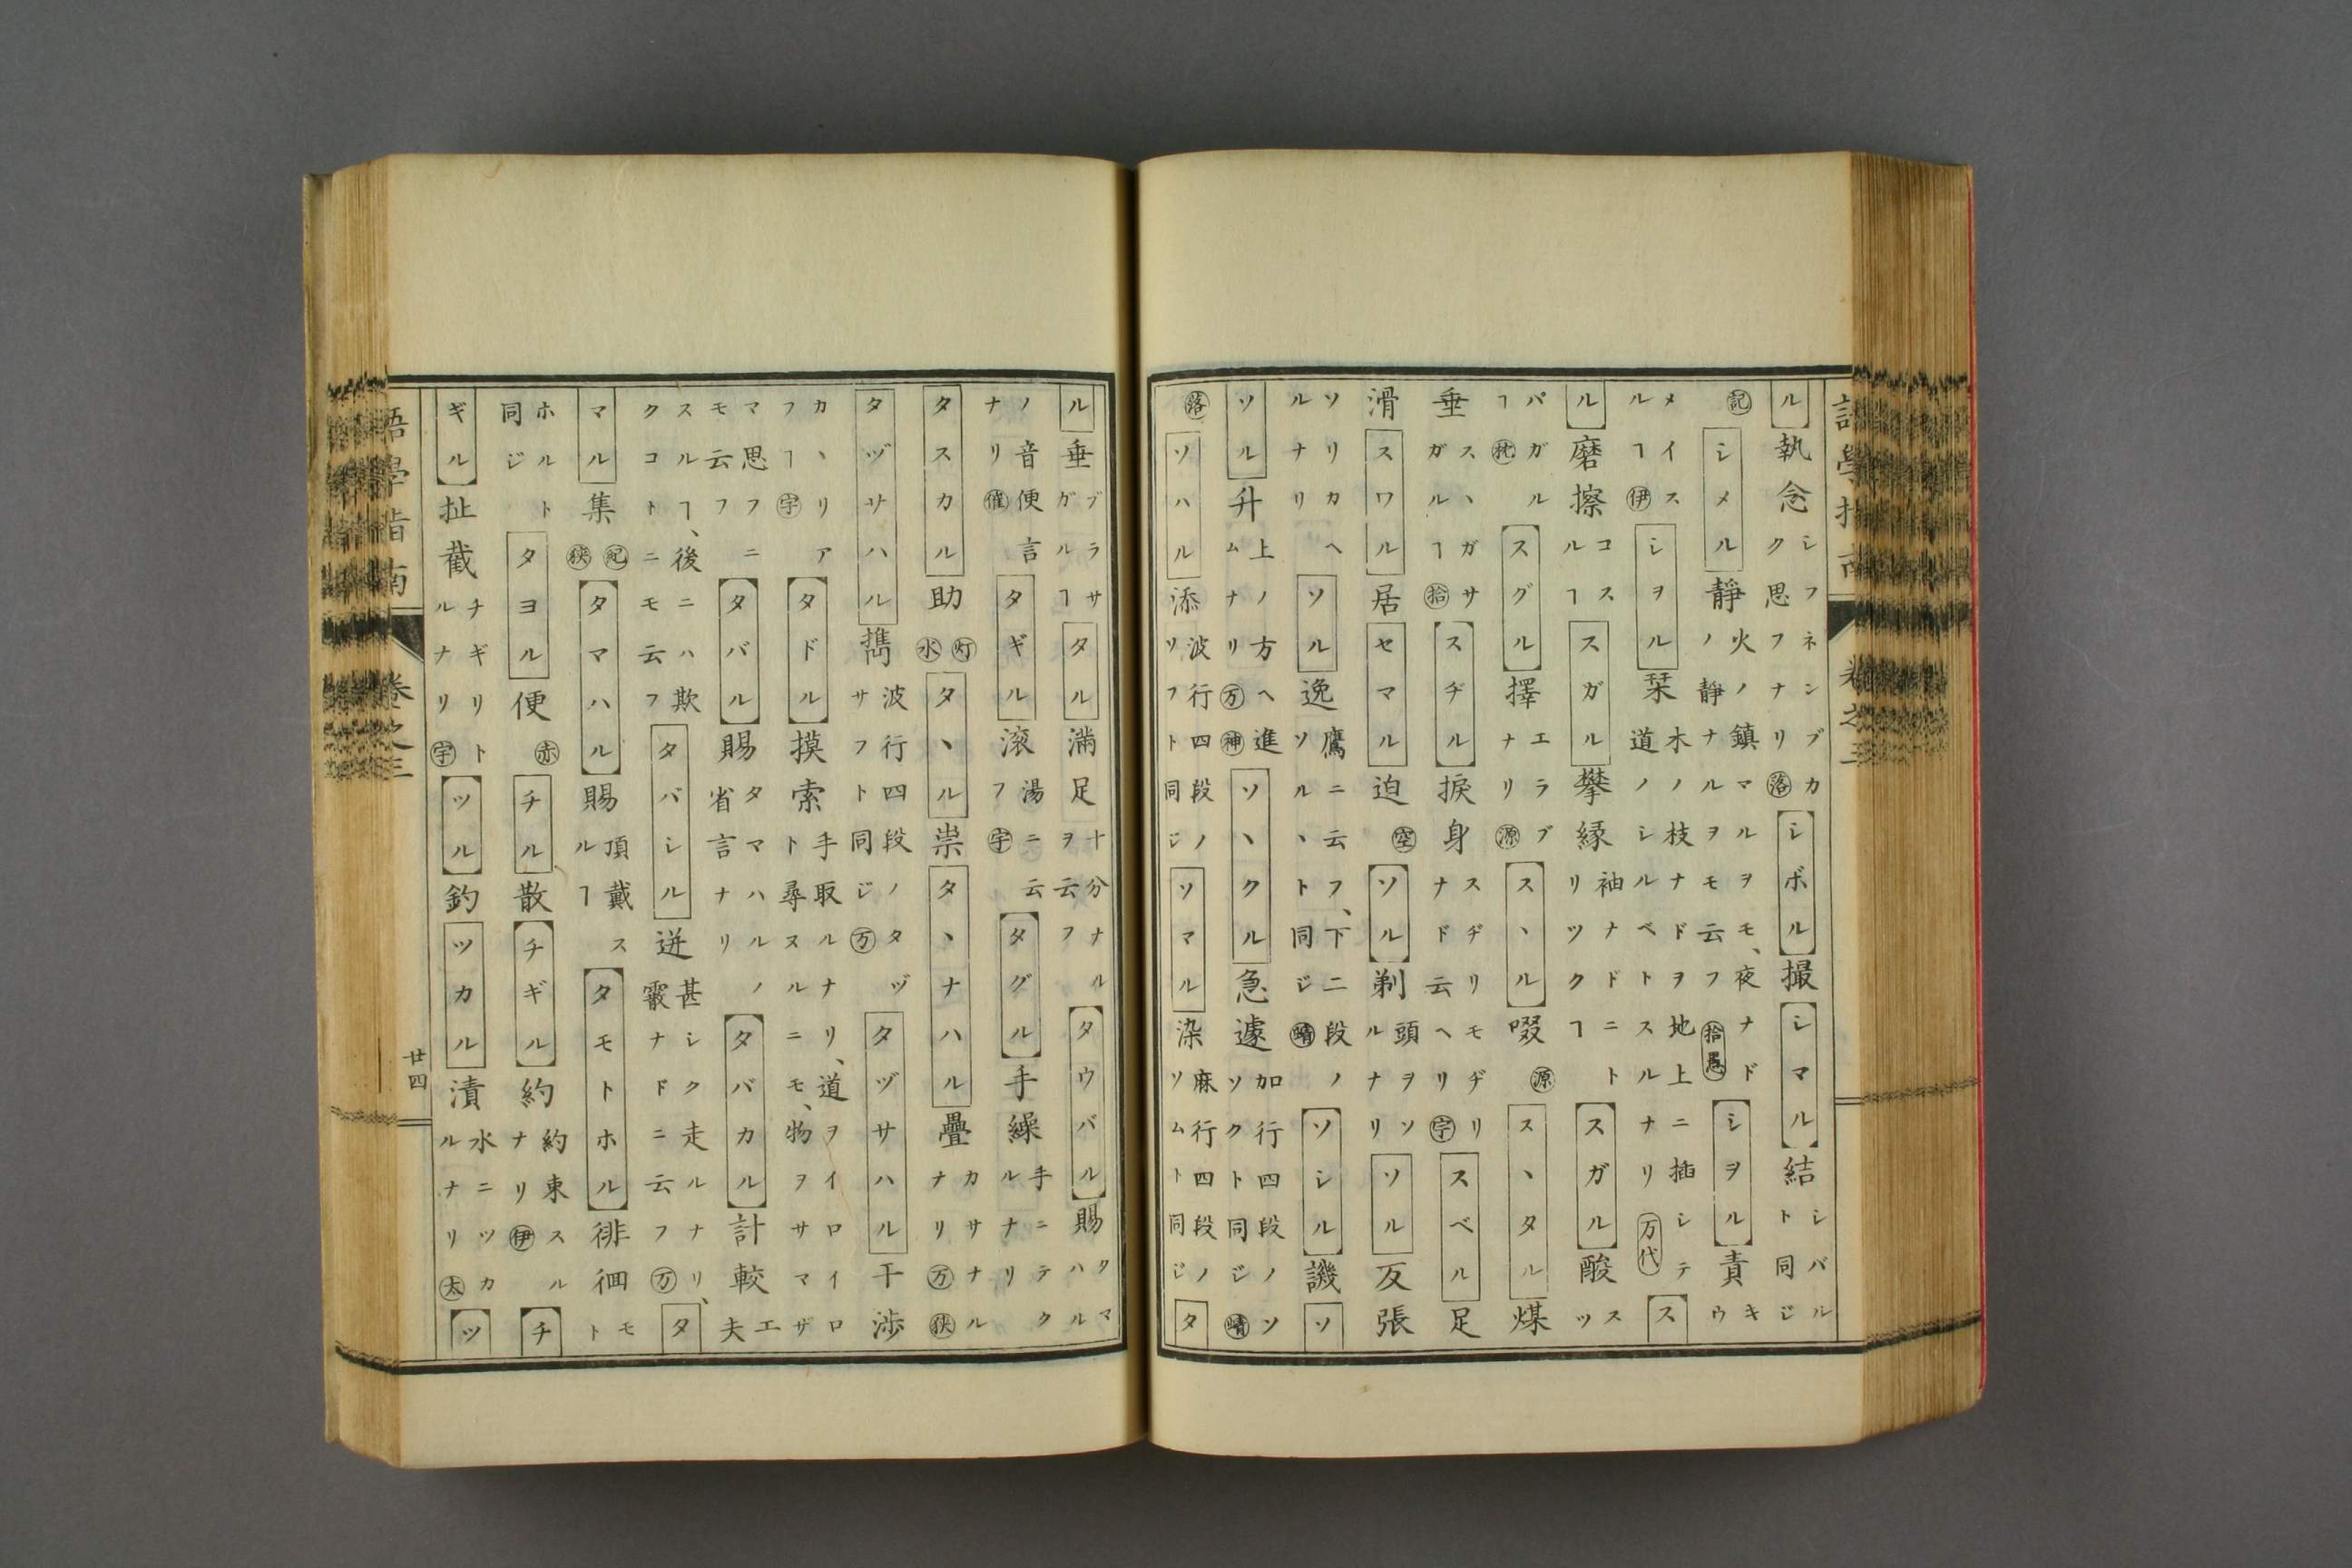 ル 執念 シフネンブカク思フナリ 落 シボル 撮 シマル 結 シバルト同ジ
記 シメル 靜 火ノ鎮マルヲモ、夜ナドノ靜ナルヲモ云フ 拾愚 シヲル 責 キウ
メイスルヿ 伊 シヲル 栞 木ノ枝ナドヲ地上ニ插シテ道ノシルベトスルナリ 万代 ス
ル 磨擦 コスルヿ スガル 攀縁 袖ナドニトリツクヿ スガル 酸 スッ
パガルヿ 枕 スグル 擇 エラブナリ 源 スヽル 啜 源 スヽタル 煤
垂 スヽガサガルヿ 拾 スヂル 捩身 スヂリモヂリナド云ヘリ 字 スベル 足
滑 スワル 居 セマル 迫 空 ソル 剃 頭ヲソルナリ ソル 反張
ソリカヘルナリ ソル 逸 鷹ニ云フ、下二段ノソルヽト同ジ 晴 ソシル 譏 ソ
ソル 升 上ノ方ヘ進ムナリ 万 神 ソヽクル 急遽 加行四段ノソソクト同ジ 晴
落 ソハル 添 波行四段ノソフト同ジ ソマル 染 麻行四段ノソムト同ジ タ
語學指南 卷之三
ル 垂 ブラサガルヿ タル 滿足 十分ナルヲ云フ タウバル 賜 タマハル
ノ音便言ナリ 催 タギル 滚 湯ニ云フ 字 タグル 手繰 手ニテクルナリ
タスカル 助 灯 水 タヽル 祟 タヽナハル 疊 カサナルナリ 万 狭
タヅサハル 攜 波行四段ノタヅサフト同ジ 万 タヅサハル 干渉
カヽリアフヿ 字 タドル 摸索 手取ルナリ、道ヲイロイロト尋ヌルニモ、物ヲサマザ
マ思フニモ云フ タバル 賜 タマハルノ省言ナリ タバカル 計較 エ夫
スルヿ、後ニハ欺クコトニモ云フ タバシル 迸 甚シク走ルナリ、霰ナドニ云フ 万 タ
マル 集 紀 狭 タマハル 賜 頂戴スルヿ タモトホル 徘徊 モト
ホルト同ジ タヨル 便 赤 チル 散 チギル 約 約束スルナリ 伊 チ
ギル 扯截 チギリトルナリ 字 ツル 釣 ツカル 漬 水ニツカルナリ 太 ツ
語學指南 卷之三 廿四